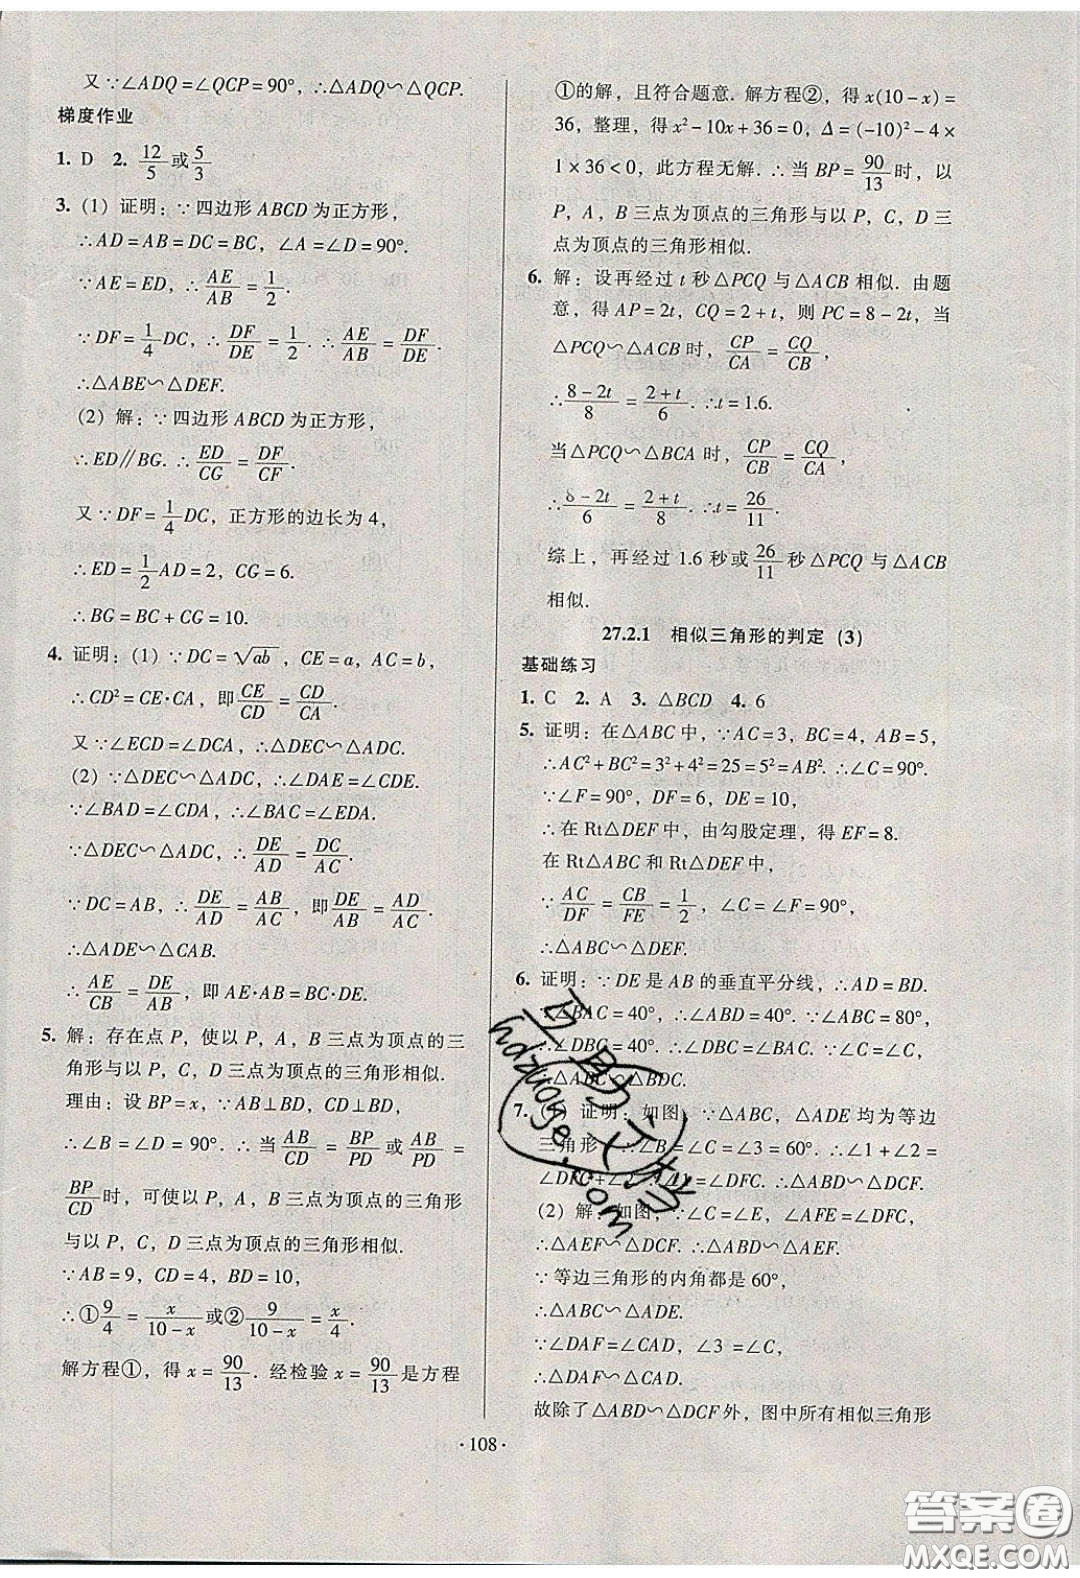 又∵∠ADQ=∠QCP=90°,∴△ADQ∽△QCP.
梯度作业
1. D 2. 12/5或5/3
3. (1) 证明:∵四边形ABCD为正方形,
∴AD=AB=DC=BC, ∠A=∠D=90°.
∵AE=ED, ∴AE/AB=1/2.
∵DF=1/4DC, ∴DF/DE=1/2. ∴AE/AB=DF/DE.
∴△ABE∽△DEF.
(2) 解:∵四边形ABCD为正方形,
∴ED∥BG. ∴ED/CG=DF/CF.
又∵DF=1/4DC,正方形的边长为4,
∴ED=1/2AD=2, CG=6.
∴BG=BC+CG=10.
4. 证明:(1) ∵DC=√ab, CE=a, AC=b,
∴CD²=CE·CA, 即CE/CD=CD/CA.
又∵∠ECD=∠DCA, ∴△DEC∽△ADC.
(2) ∵△DEC∽△ADC, ∴∠DAE=∠CDE.
∵∠BAD=∠CDA, ∴∠BAC=∠EDA.
∵△DEC∽△ADC, ∴DE/AD=DC/AC.
∵DC=AB, ∴DE/AD=AB/AC, 即DE/AB=AD/AC.
∴△ADE∽△CAB.
∴AE/CB=DE/AB, 即AE·AB=BC·DE.
5. 解:存在点P,使以P, A, B三点为顶点的三
角形与以P, C, D三点为顶点的三角形相似.
理由:设BP=x, ∵AB⊥BD, CD⊥BD,
∴∠B=∠D=90°. ∴当AB/CD=BP/PD或AB/PD=
BP/CD时,可使以P, A, B三点为顶点的三角形
与以P, C, D三点为顶点的三角形相似.
∵AB=9, CD=4, BD=10,
∴①9/4=x/(10-x)或②9/(10-x)=x/4.
解方程①,得x=90/13. 经检验x=90/13是方程
①的解,且符合题意. 解方程②,得x(10-x)=
36,整理,得x²-10x+36=0, Δ=(-10)²-4×
1×36<0,此方程无解. ∴当BP=90/13时,以
P, A, B三点为顶点的三角形与以P, C, D三
点为顶点的三角形相似.
6. 解:设再经过t秒△PCQ与△ACB相似. 由题
意,得AP=2t, CQ=2+t,则PC=8-2t,当
△PCQ∽△ACB时, CP/CA=CQ/CB,
∴(8-2t)/8=(2+t)/6. ∴t=1.6.
当△PCQ∽△BCA时, CP/CB=CQ/CA,
∴(8-2t)/6=(2+t)/8. ∴t=26/11.
综上,再经过1.6秒或26/11秒△PCQ与△ACB
相似.
27.2.1 相似三角形的判定 (3)
基础练习
1. C 2. A 3. △BCD 4. 6
5. 证明:在△ABC中,∵AC=3, BC=4, AB=5,
∴AC²+BC²=3²+4²=25=5²=AB². ∴∠C=90°.
∵∠F=90°, DF=6, DE=10,
∴在Rt△DEF中,由勾股定理,得EF=8.
在Rt△ABC和Rt△DEF中,
∵AC/DF=CB/FE=1/2, ∠C=∠F=90°,
∴△ABC∽△DEF.
6. 证明:∵DE是AB的垂直平分线,∴AD=BD.
∵∠BAC=40°, ∴∠ABD=40°. ∵∠ABC=80°,
∴∠DBC=40°. ∴∠DBC=∠BAC. ∵∠C=∠C,
∴△ABC∽△BDC.
7. (1) 证明:如图,∵△ABC, △ADE均为等边
三角形,∴∠B=∠C=∠3=60°. ∴∠1+∠2=
∠DFC+∠2. ∴∠1=∠DFC. ∴△ABD∽△DCF.
(2) 解:如图,∵∠C=∠E, ∠AFE=∠DFC,
∴△AEF∽△DCF. ∴△ABD∽△AEF.
∵等边三角形的内角都是60°,
∴△ABC∽△ADE.
∵∠DAF=∠CAD, ∠3=∠C,
∴△DAF∽△CAD.
故除了△ABD∽△DCF外,图中所有相似三角形
·108·
互助文档
hdzuoye.com
答案圈
MXQE.COM